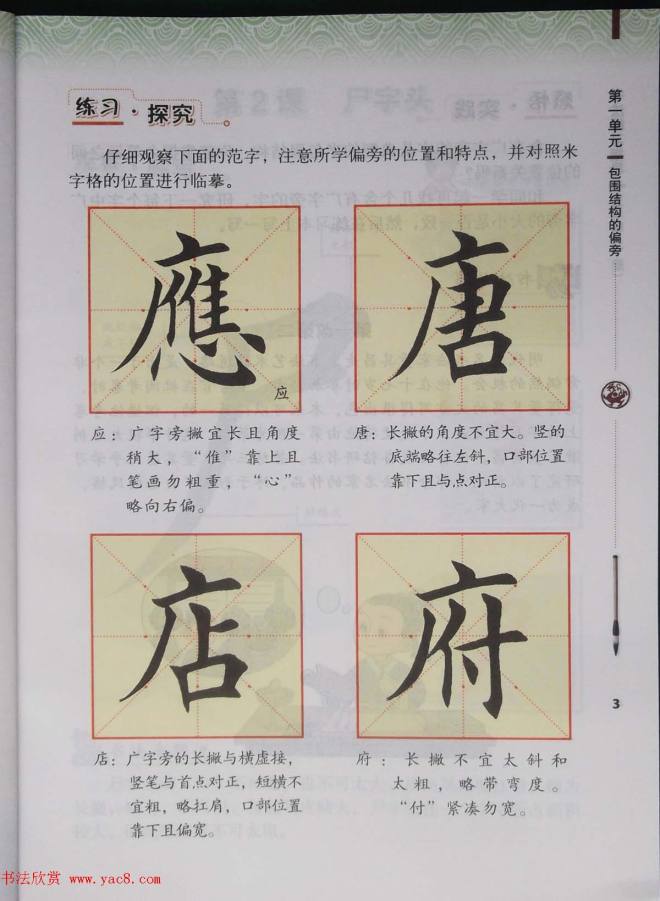 练习·探究
仔细观察下面的范字，注意所学偏旁的位置和特点，并对照米
字格的位置进行临摹。
應
应
唐
应：广字旁撇宜长且角度
稍大，“倠”靠上且
笔画勿粗重，“心”
略向右偏。
唐：长撇的角度不宜大。竖的
底端略往左斜，口部位置
靠下且与点对正。
店
府
店：广字旁的长撇与横虚接，
竖笔与首点对正，短横不
宜粗，略扛肩，口部位置
靠下且偏宽。
府：长撇不宜太斜和
太粗，略带弯度。
“付”紧凑勿宽。
第一单元 包围结构的偏旁
3
书法欣赏 www.yac8.com